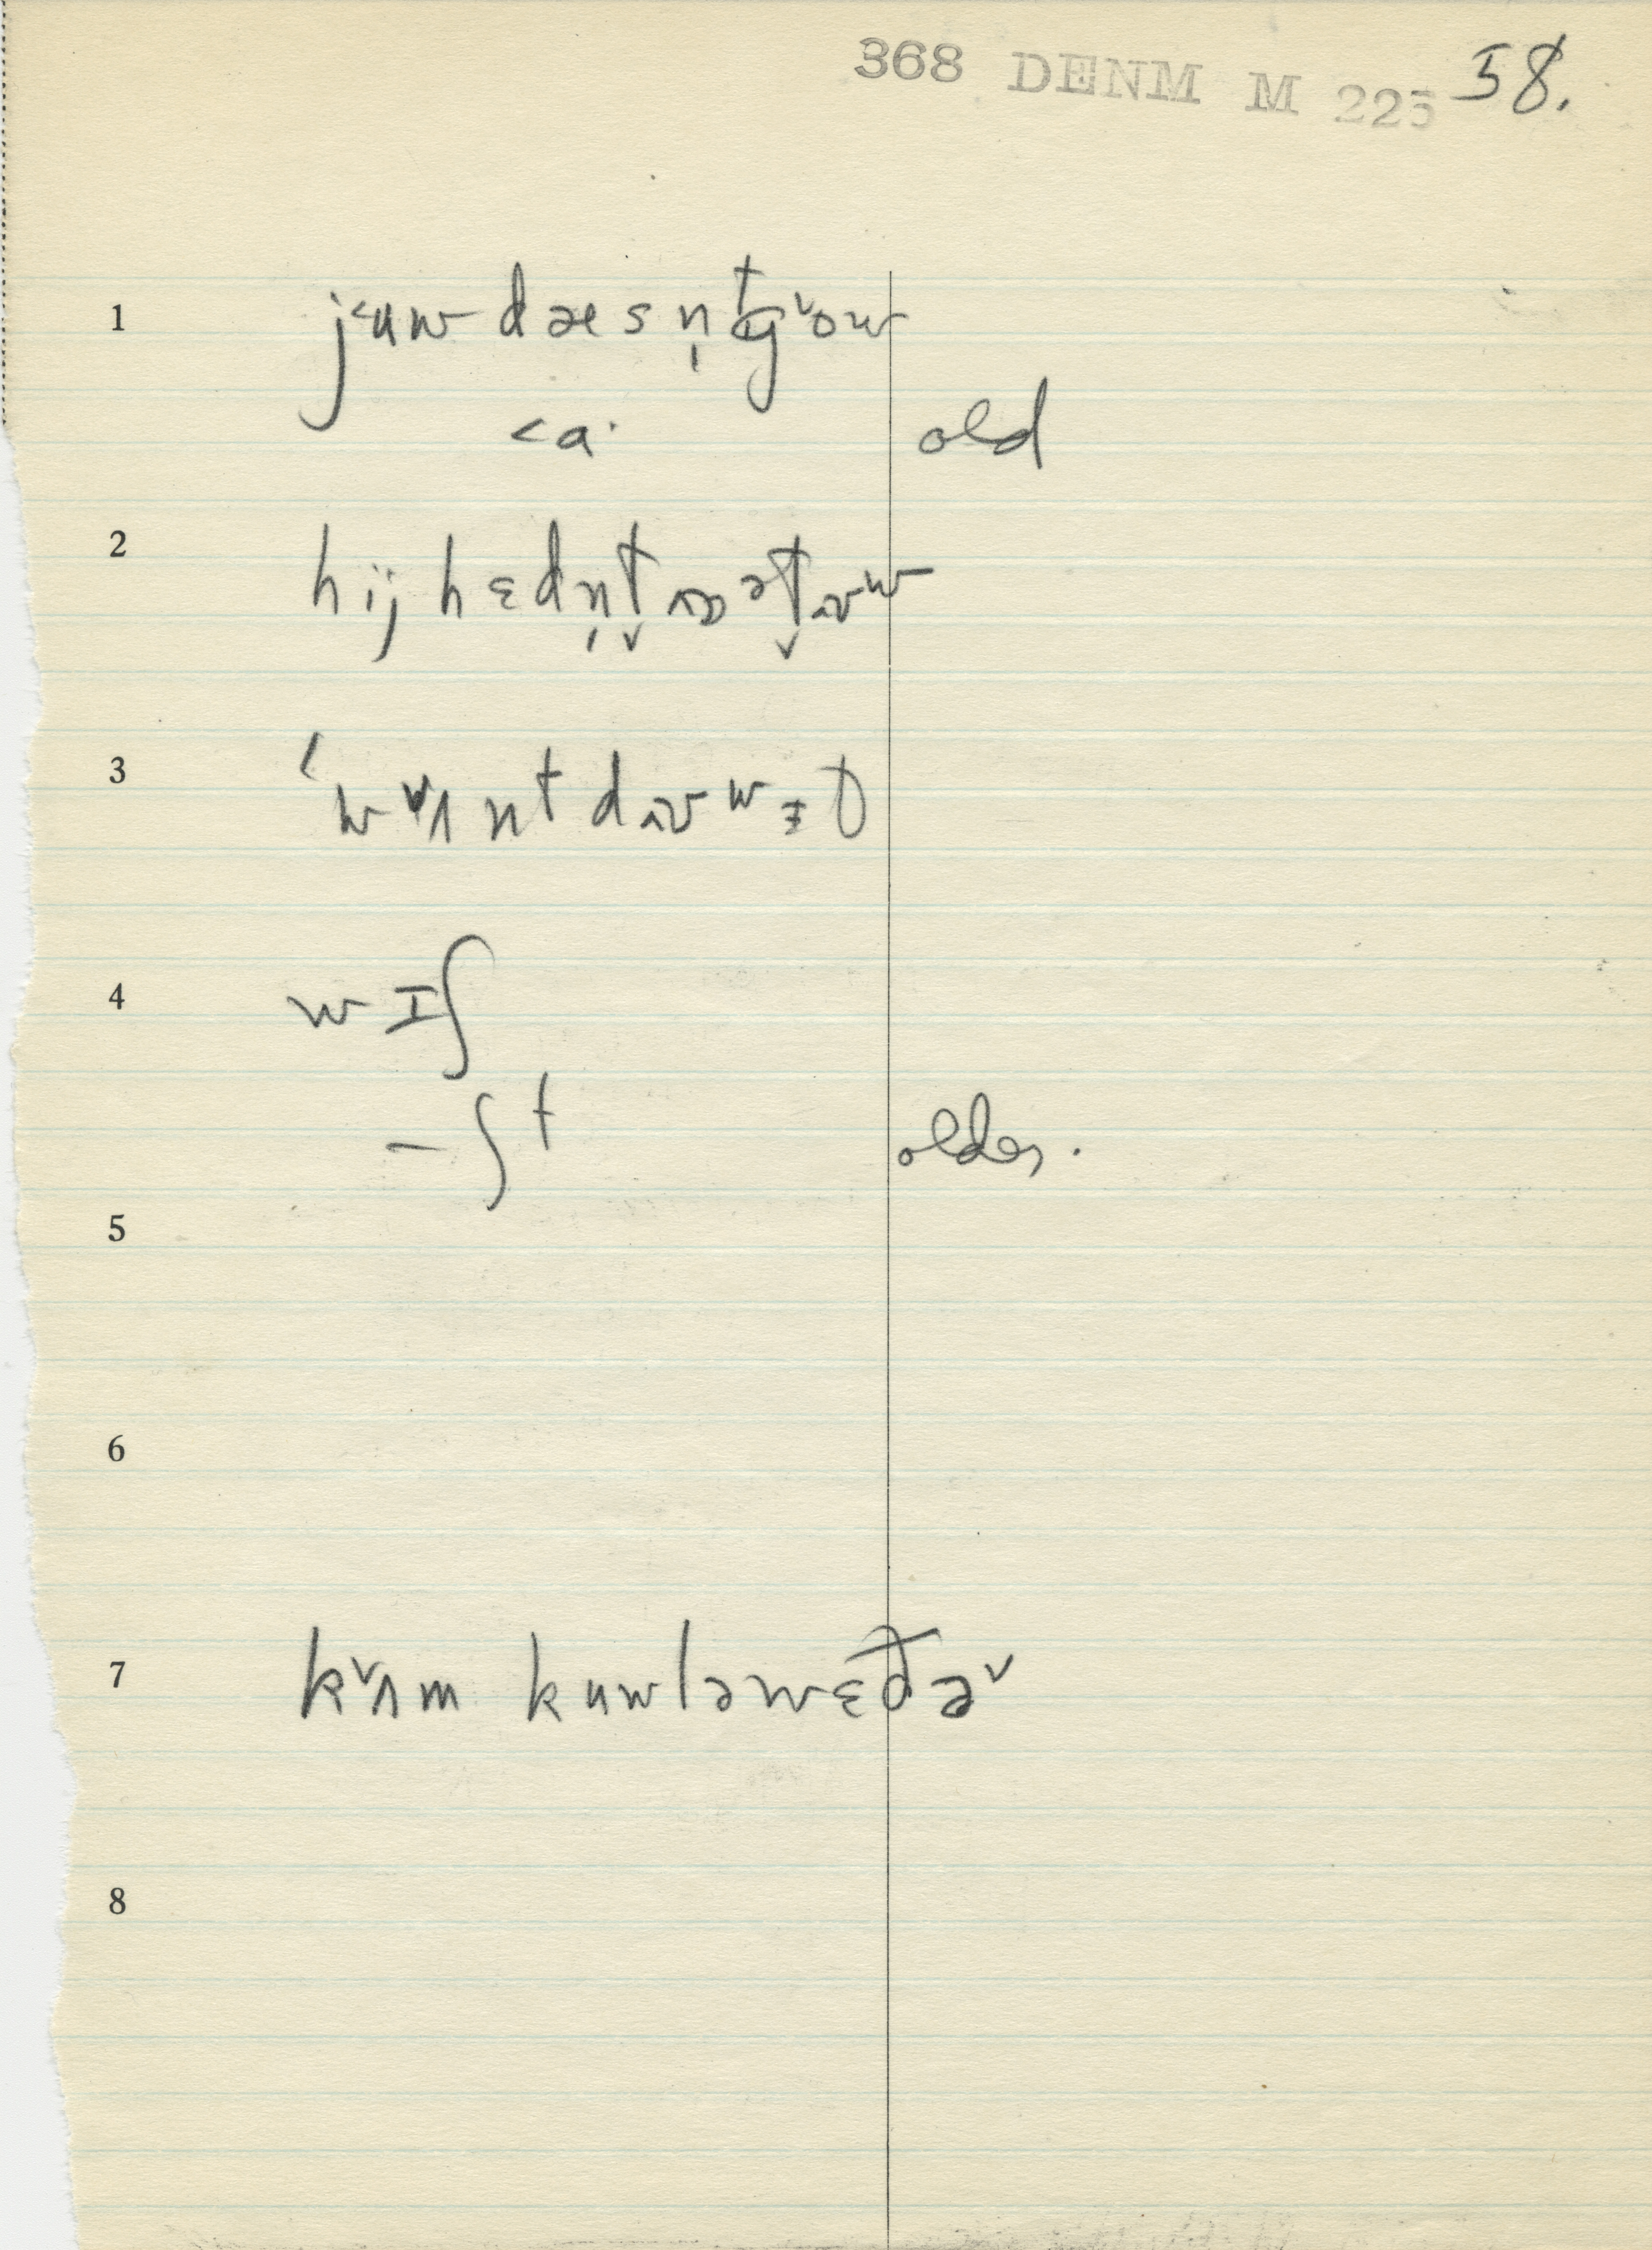 368 DENM M 225 58.
1 j˂uw dæs n̩tg˅ow
˂a· old
2 hij hɛdn̩t̬ ʌɒ ət̬ʌʊw
3 ˈw˅ʌnt dʌʊwᵻt
4 wɪʃ
– ʃt older.
5
6
7 k˅ʌm kuwləwɛðə˅
8